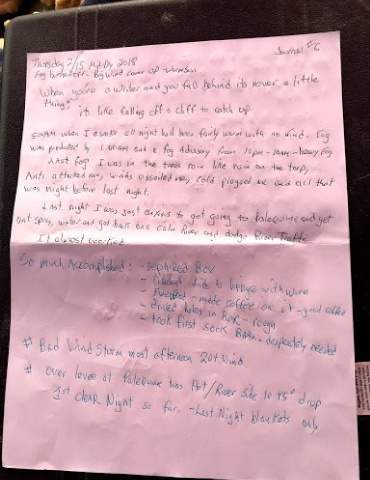 Journal #6
Thursday 2/15 Mid Day 2018
Fog burned off - Big wind came up - warm sun
When you're a writer and you fall behind its never a little
thing.
its like falling off a cliff to catch up.
when I awoke all night had been fairly warm with no wind. Fog
was produced by a Fog Advisory from 10pm - 10am - heavy fog
Last fog I was in the trees rain like rain on the tarp,
Ants attacked me, winds assailed me, cold plagued me and all that
was night before last night.
Last night I was just anxious to get going to and get
spray, water and get back one calm River and dodge River Traffic
It almost worked
So much Accomplished: - Box
- lid to hinges with wire
- made coffee on it - good coffee
- drilled holes in Box - rough
- took first sock Bath - desperately needed
# Bad Wind Storm most afternoon 20+ wind.
# over levee at was Hot / River side 10 to 15° drop
1st clear Night so far - Last Night blankets only